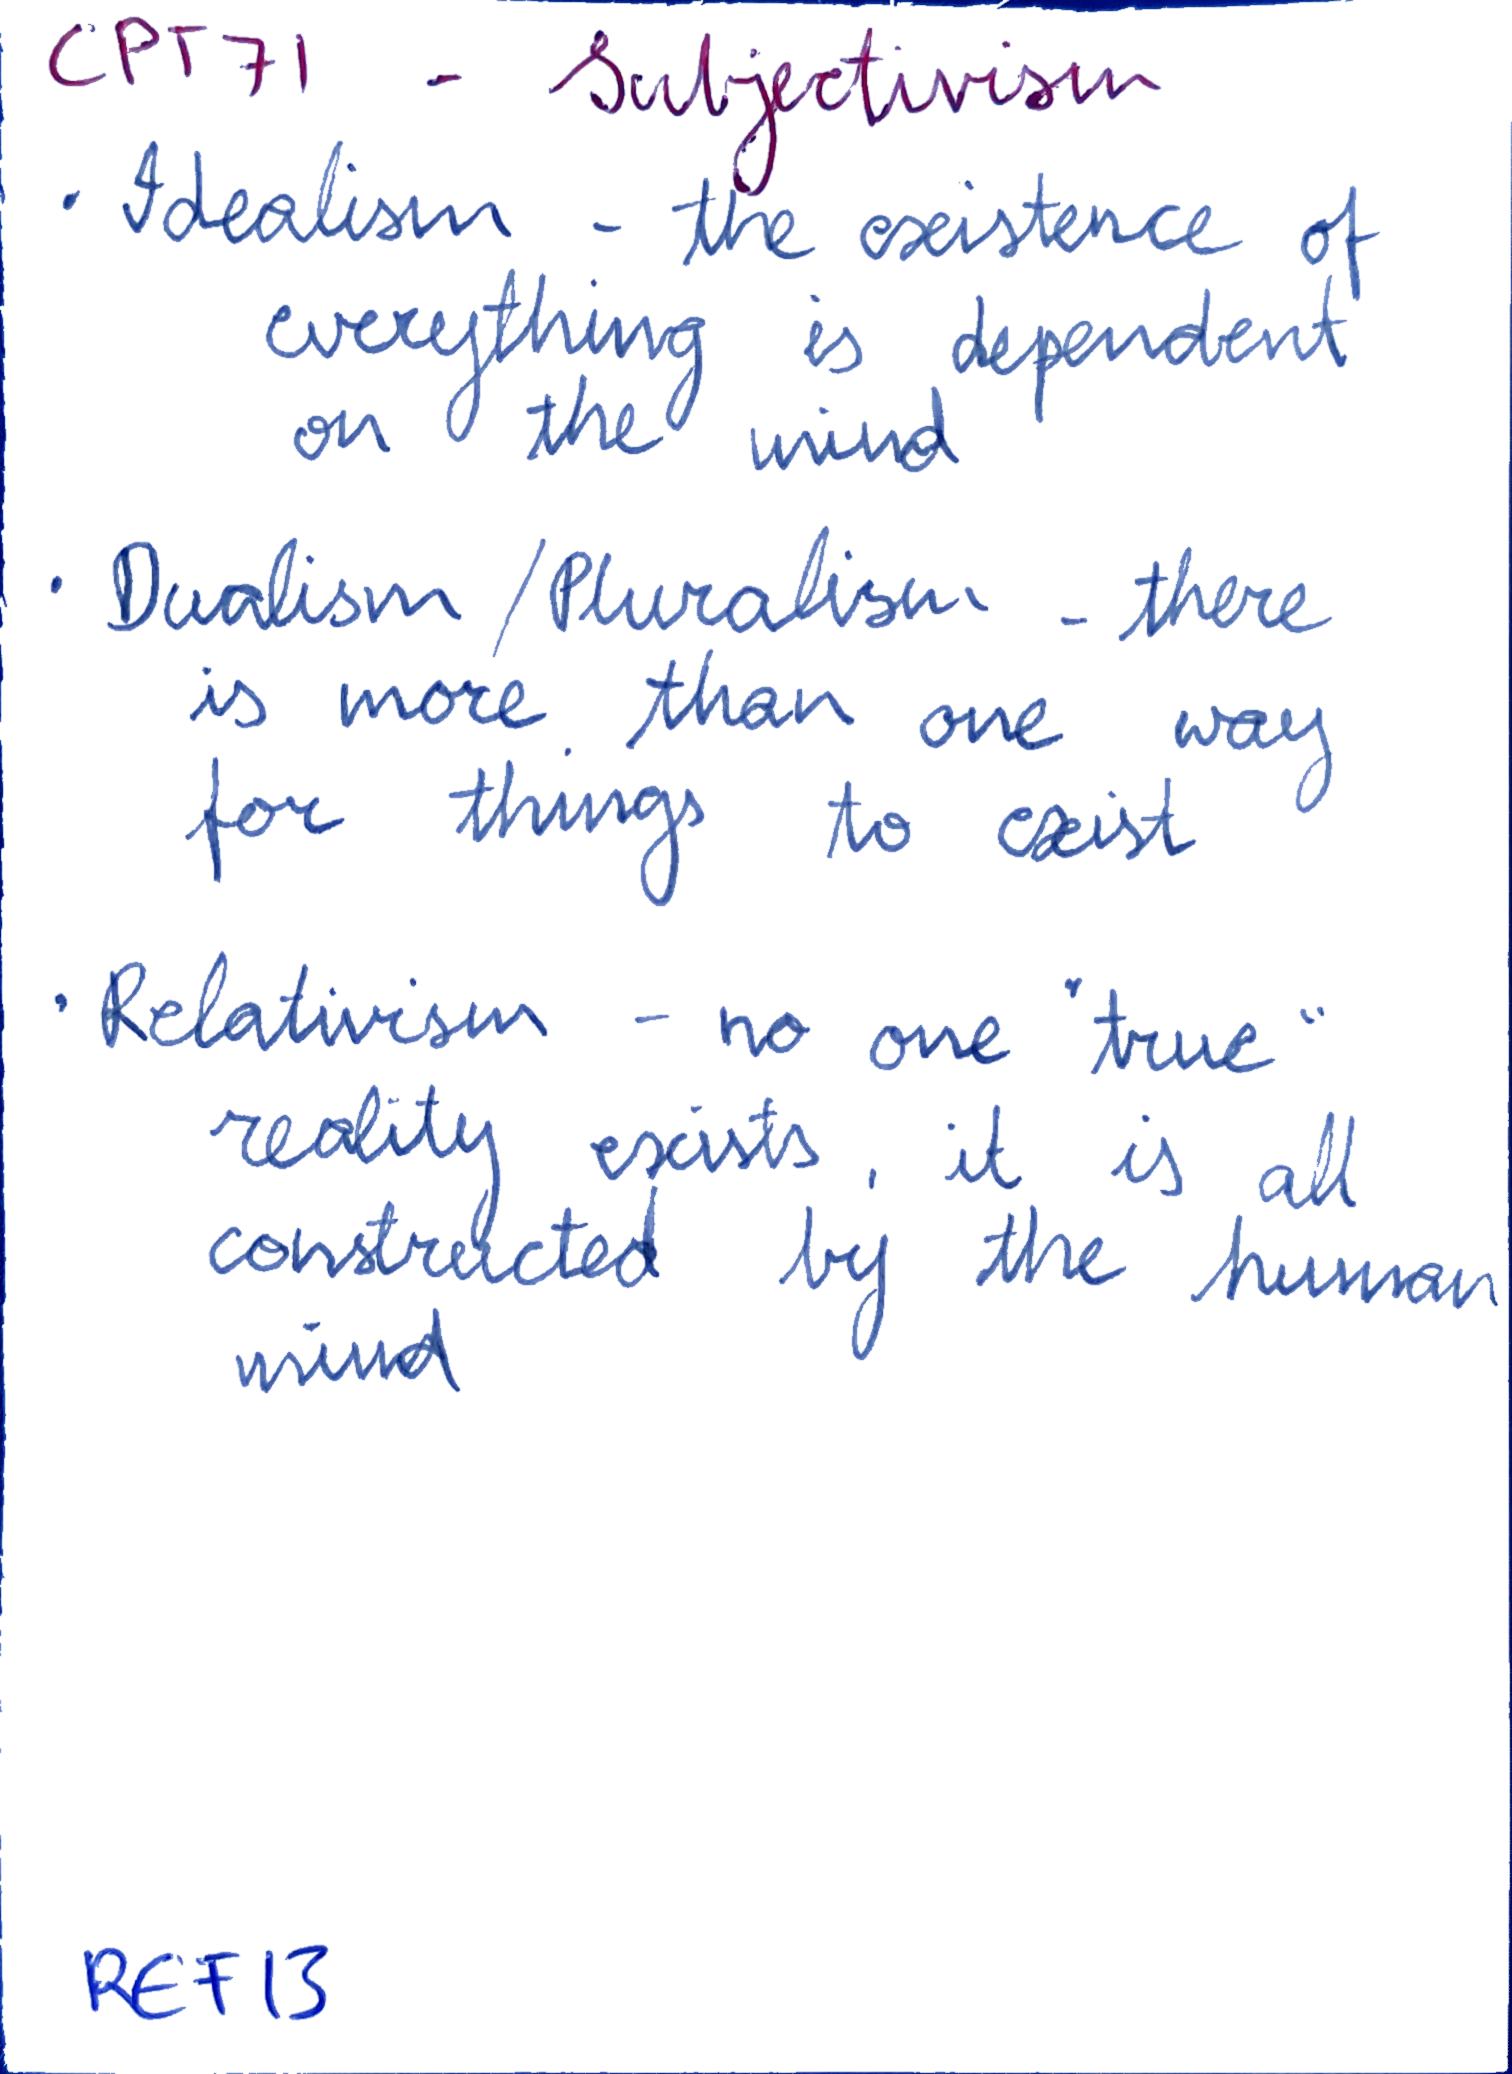 CPT71 - Subjectivism
· Idealism - the existence of
everything is dependent
on the mind
· Dualism / Pluralism - there
is more than one way
for things to exist
· Relativism - no one "true"
reality exists, it is all
constructed by the human
mind
REF13